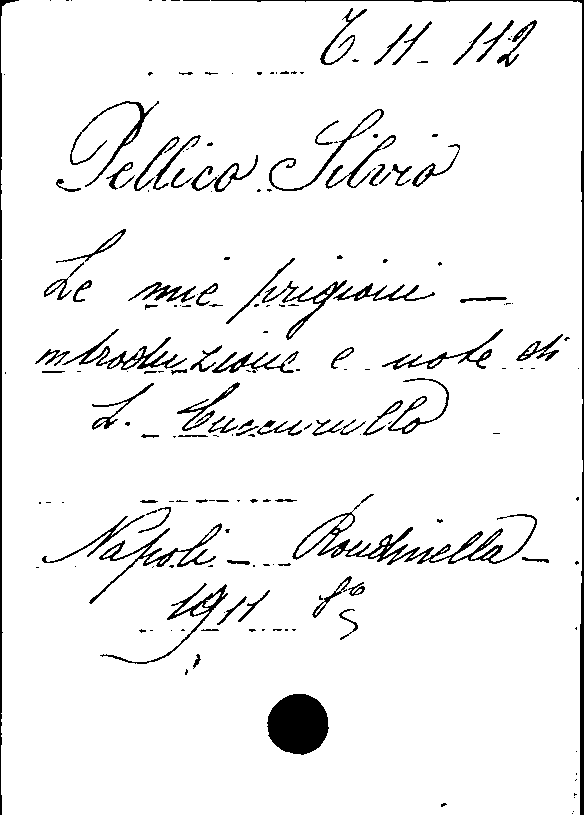 6. 11 - 112
Pellico Silvio
Le mie prigioni —
introduzione e note di
L. Cuccurullo
Napoli - Rondinella -
1911 8°